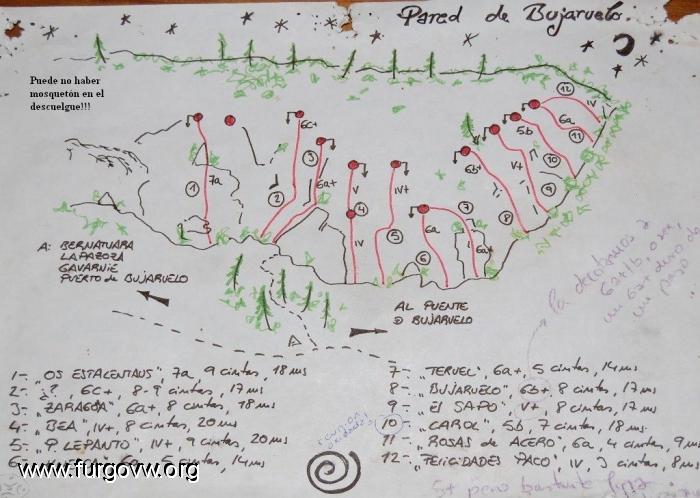 Pared de Bujaruelo.
Puede no haber
mosquetón en el
descuelgue!!!
12
IV
6c+
5b
6a
11
3
V+
10
7a
6a+
6b+
9
1
2
V
IV+
7
8
4
6a
5
IV
6
6a+
A: BERNATUARA
LAPAZOZA
GAVARNIE
PUERTO DE BUJARUELO
AL PUENTE
D BUJARUELO
la decotamos a
6a+/b, o sea,
un 6a+ duro de
un paso
1- "OS ESTALENTAUS", 7a, 9 cintas, 18 ms
2- ¿?, 6c+, 8-9 cintas, 17 ms
3- "ZARAGOZA" 6a+, 8 cintas, 18 ms
4- "BEA", IV+, 8 cintas, 20 ms
5- "P LEPANTO", IV+, 9 cintas, 20 ms
5 cintas, 14 ms
7- "TERUEL", 6a+, 5 cintas, 14 ms
8- "BUJARUELO" 6b+, 8 cintas, 17 ms
9- "EL SAPO", V+, 8 cintas, 17 ms
10- "CAROL", 5b, 7 cintas, 18 ms
11- "ROSAS de ACERO", 6a, 4 cintas, 9 ms
12- "FELICIDADES PACO", IV, 3 cintas, 8 ms
5+ pero bastante
www.furgovw.org